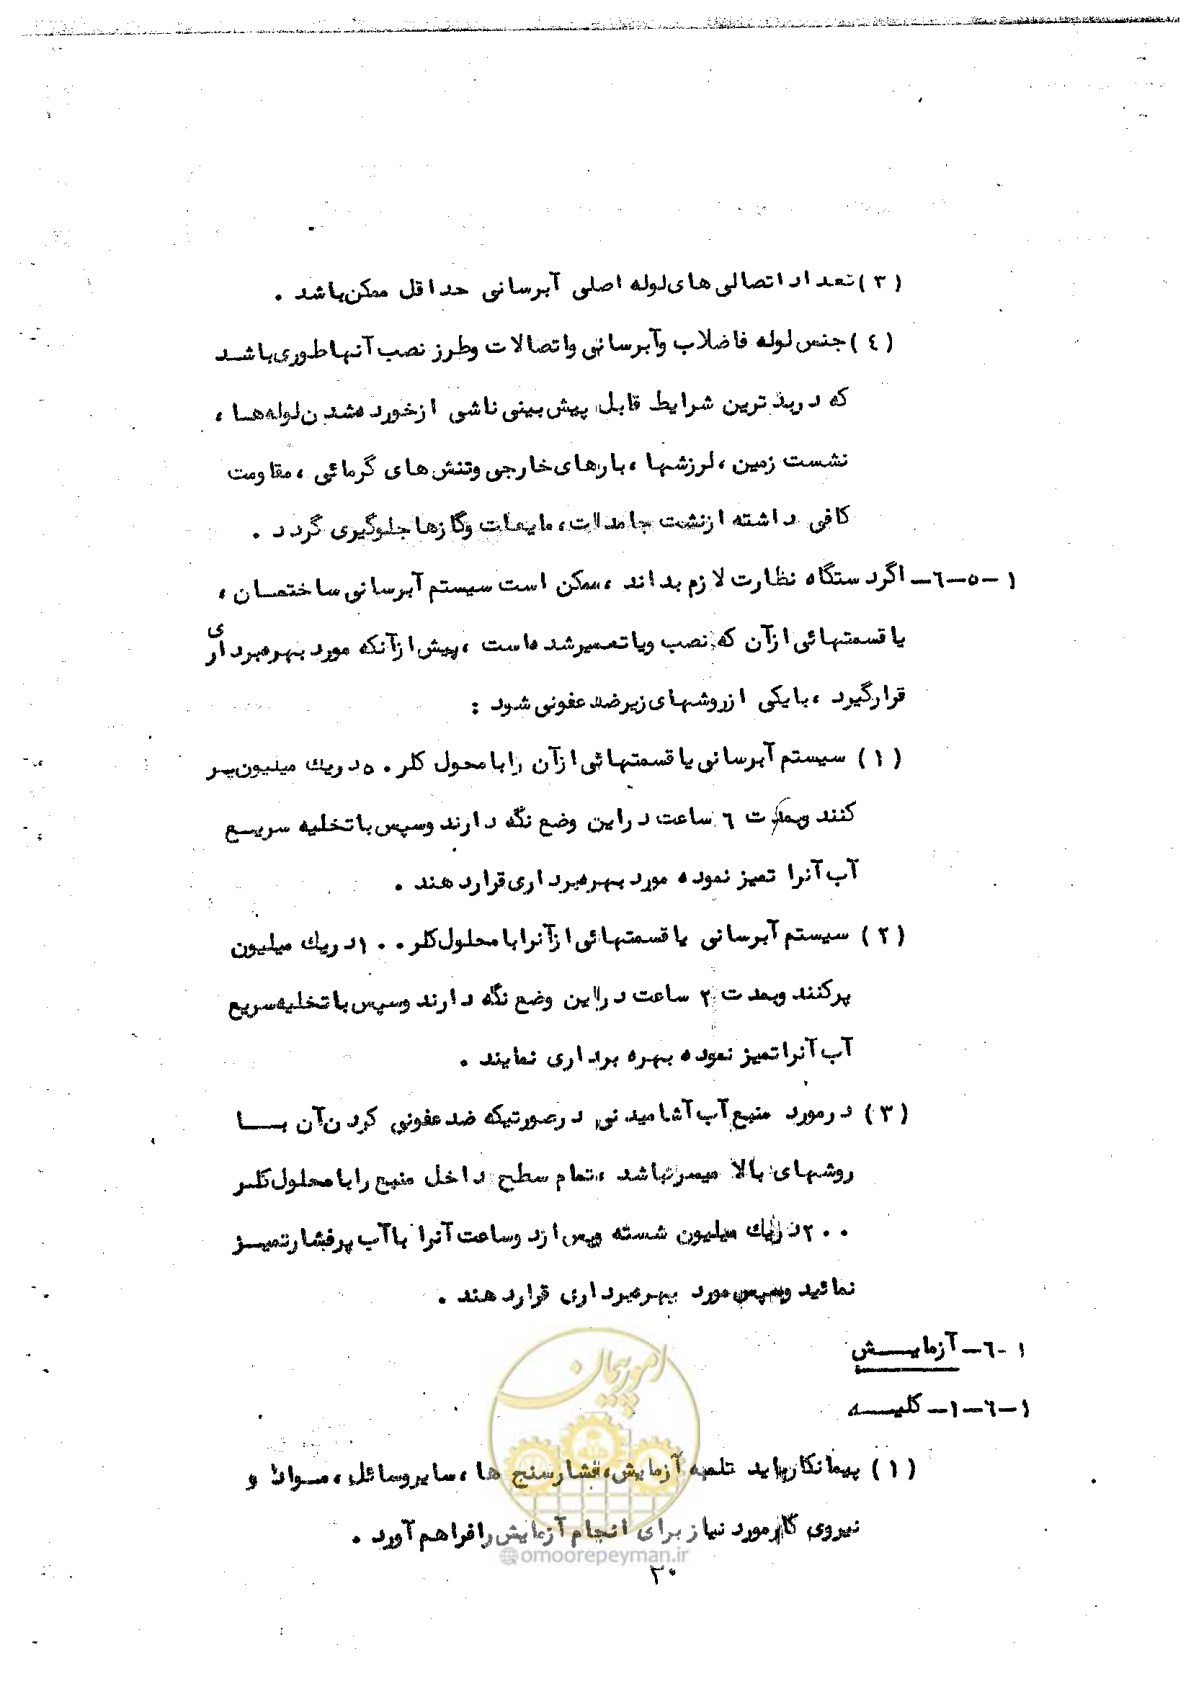 (٣) تعداد اتصالی های لوله اصلی آبرسانی حداقل ممکن باشد .
(٤) جنس لوله فاضلاب وآبرسانی واتصالات وطرز نصب آنها طوری باشد
که دربدترین شرایط قابل پیش بینی ناشی ازخورده شدن لوله ها ،
نشست زمین ، لرزشها ، بارهای خارجی وتنش های گرمائی ، مقاومت
کافی داشته ازنشت جامدات، مایعات وگازها جلوگیری گردد .
١-٥-٦- اگر دستگاه نظارت لازم بداند ، ممکن است سیستم آبرسانی ساختمان ،
یا قسمتهائی ازآن که نصب ویا تعمیر شده است ، پیش ازآنکه مورد بهره برداری
قرارگیرد ، بایکی ازروشهای زیر ضد عفونی شود :
(١) سیستم آبرسانی یا قسمتهائی ازآن رابا محول کلر ٥٠ دریك میلیون پر
کنند وبمدت ٦ ساعت دراین وضع نگه دارند وسپس با تخلیه سریع
آب آنرا تمیز نموده مورد بهره برداری قرار دهند .
(٢) سیستم آبرسانی یا قسمتهائی ازآنرا با محلول کلر ١٠٠ دریك میلیون
پرکنند وبمدت ٢ ساعت دراین وضع نگه دارند وسپس با تخلیه سریع
آب آنرا تمیز نموده بهره برداری نمایند .
(٣) درمورد منبع آب آشامیدنی درصورتیکه ضد عفونی کردن آن با
روشهای بالا میسر نباشد ، تمام سطح داخل منبع رابا محلول کلر
٢٠٠ دریك میلیون شسته وپس از دوساعت آنرا باآب پرفشار تمیز
نمائید وسپس مورد بهره برداری قرار دهند .
١-٦- آزمایش
١-٦-١- کلیه
(١) پیمانکار باید تلمبه آزمایش، فشارسنج ها ، سایر وسائل ، مواد و
نیروی کار مورد نیاز برای انجام آزمایش رافراهم آورد .
امور پیمان
@omoorepeyman.ir
٢٠